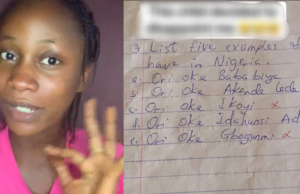 3 List five examples
have in Nigeria.
a. Ori oke Baba biye
b. Ori Oke Akande
c. Ori Oke Ikoyi x
d. Ori Oke Idahunsi Ad
e. Ori Oke Gbogunmi x